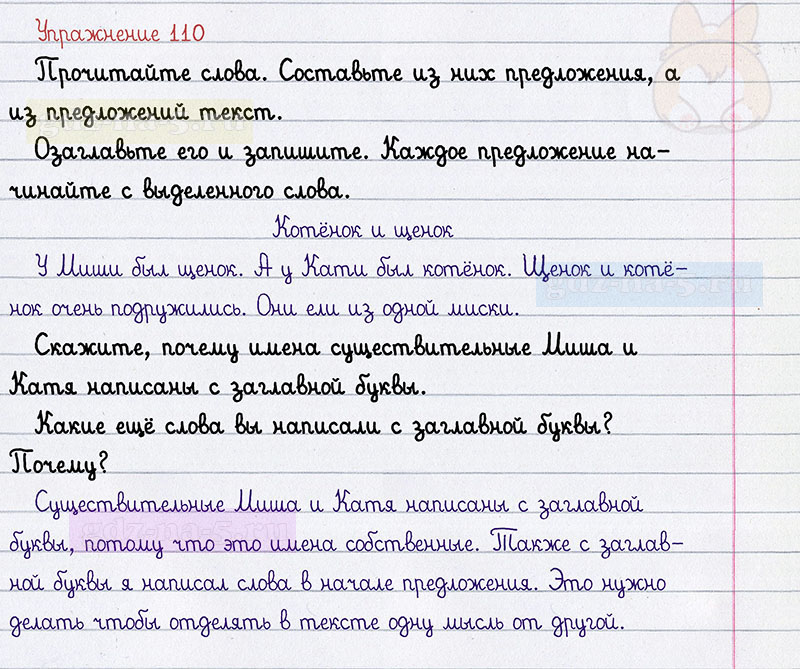 Упражнение 110
Прочитайте слова. Составьте из них предложения, а
из предложений текст.
Озаглавьте его и запишите. Каждое предложение на-
чинайте с выделенного слова.
Котёнок и щенок
У Миши был щенок. А у Кати был котёнок. Щенок и котё-
нок очень подружились. Они ели из одной миски.
Скажите, почему имена существительные Миша и
Катя написаны с заглавной буквы.
Какие ещё слова вы написали с заглавной буквы?
Почему?
Существительные Миша и Катя написаны с заглавной
буквы, потому что это имена собственные. Также с заглав-
ной буквы я написал слова в начале предложения. Это нужно
делать чтобы отделять в тексте одну мысль от другой.
gdz-na-5.ru
gdz-na-5.ru
gdz-na-5.ru